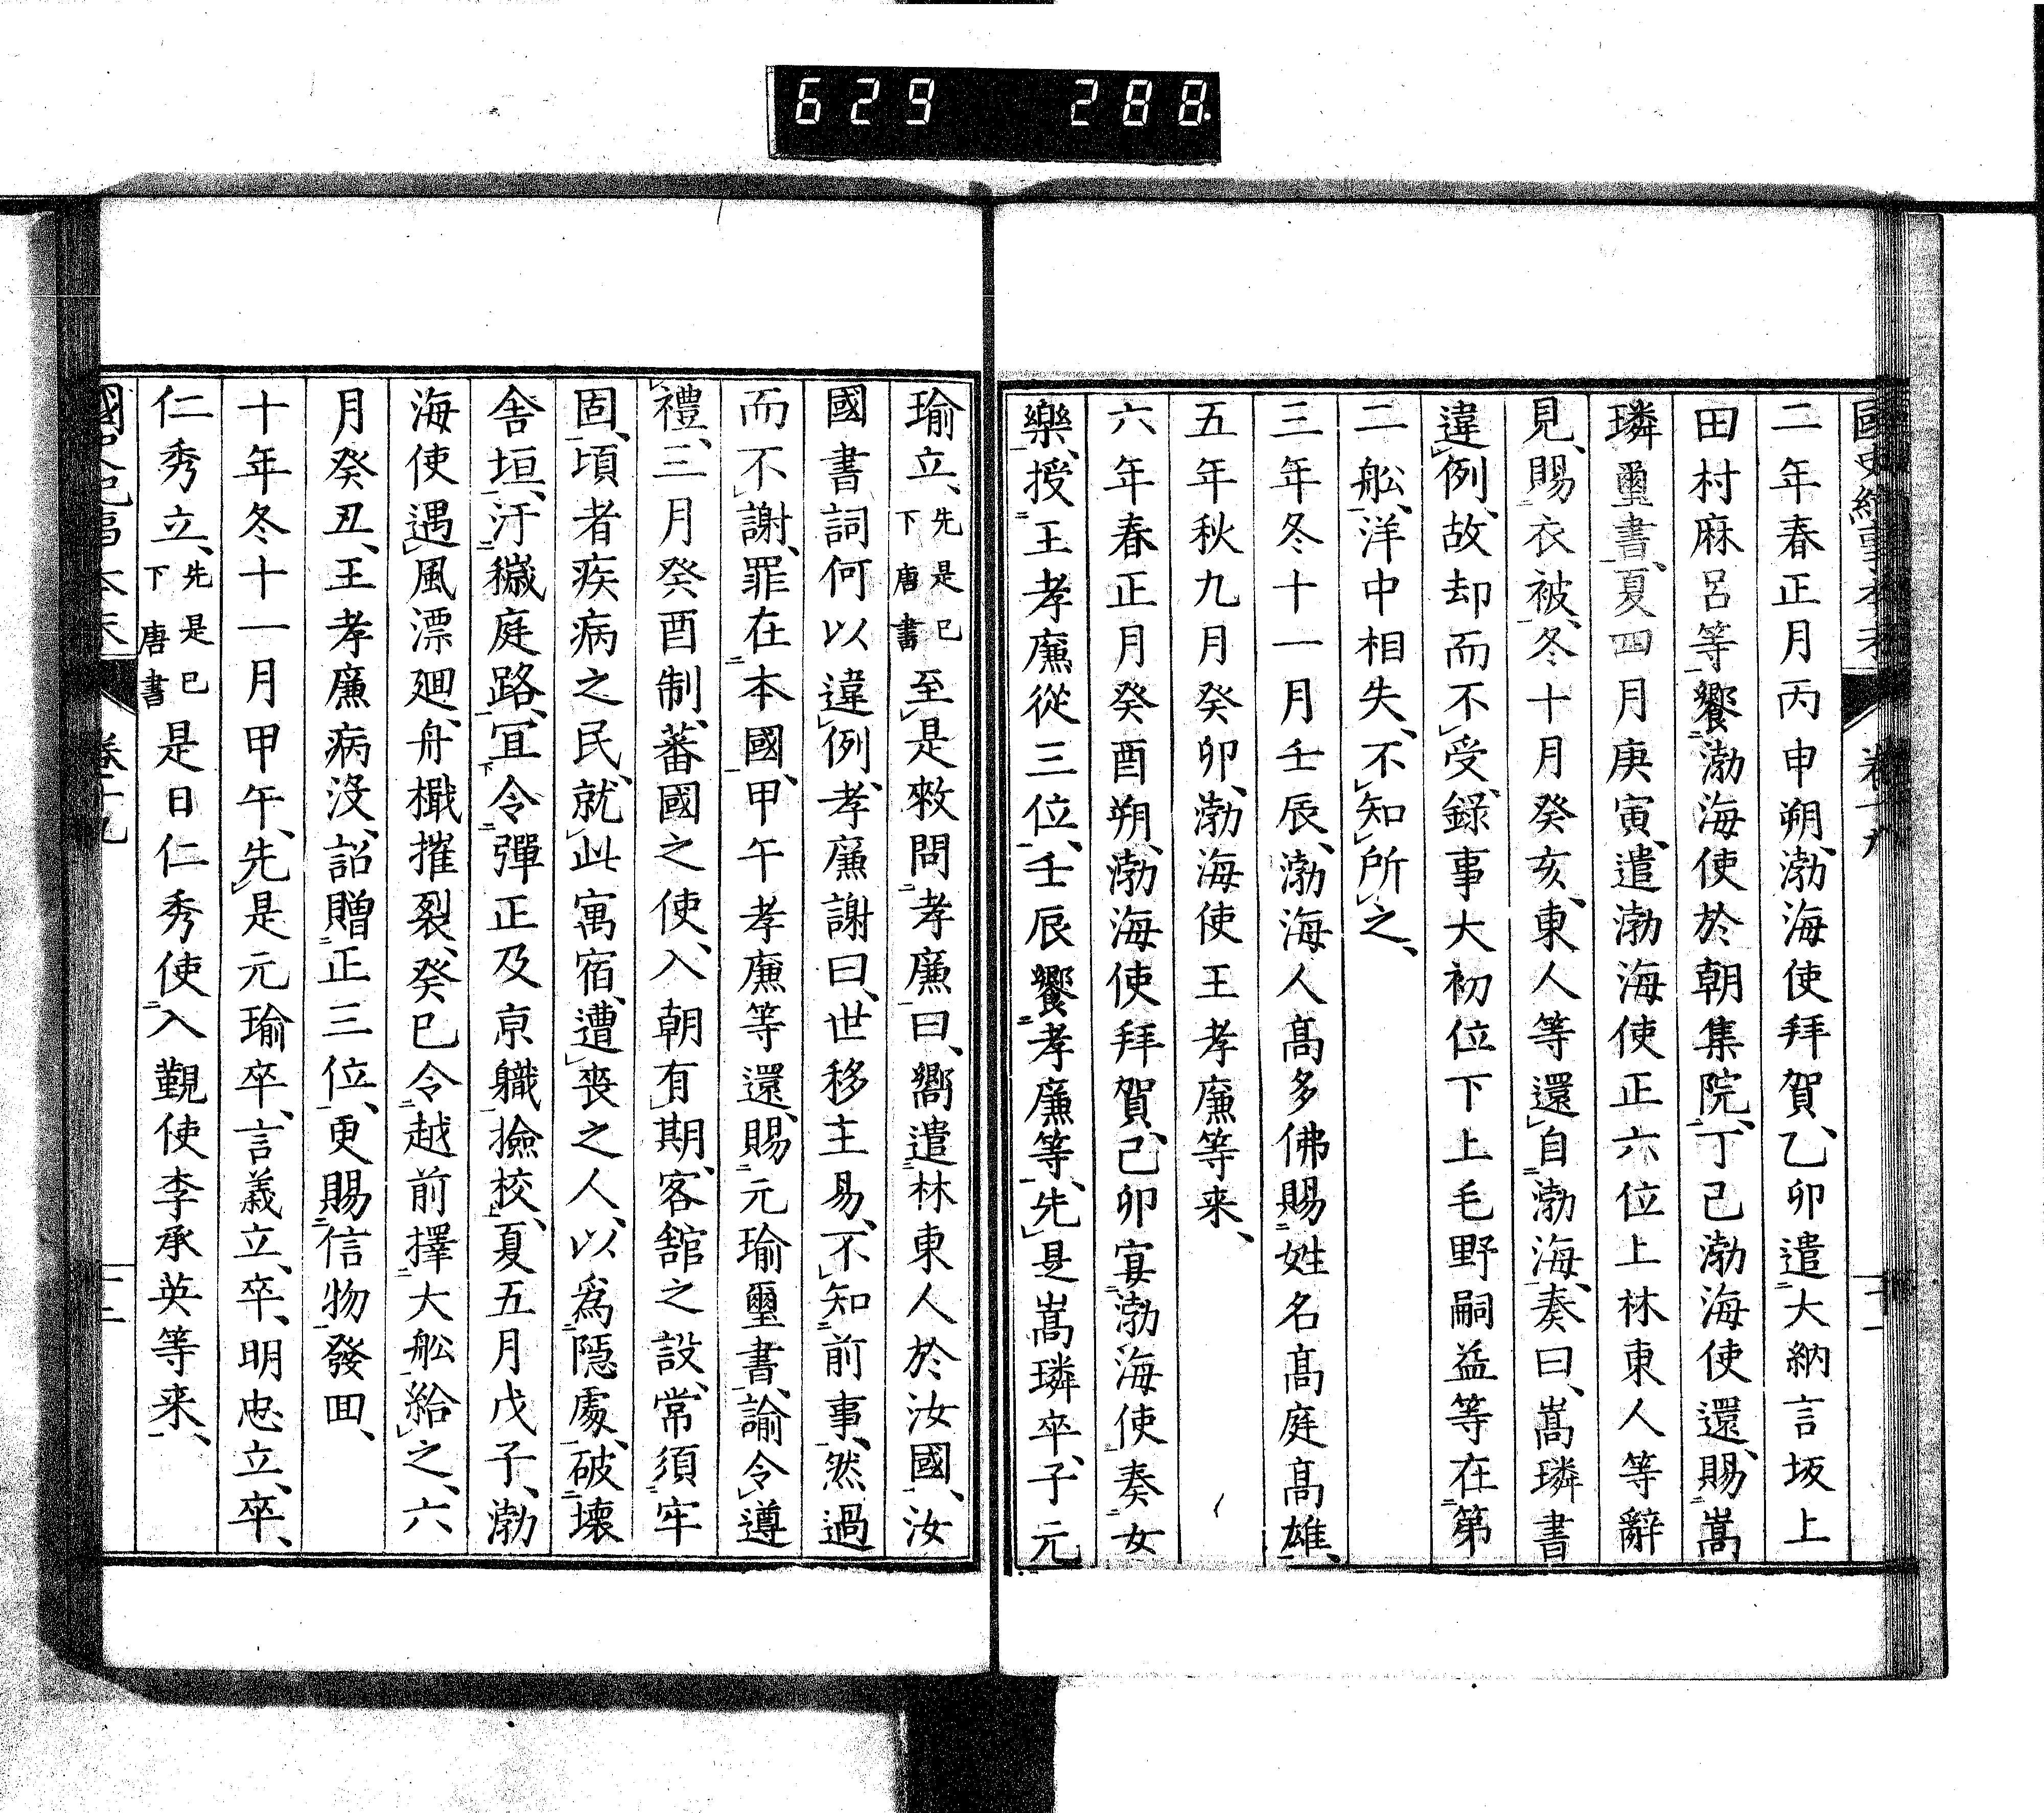 629 288
二年春正月丙申朔、渤海使拜賀、乙卯遣二大納言坂上
田村麻呂等一饗二渤海使於朝集院一、丁巳渤海使還、賜二嵩
璘璽書一、夏四月庚寅、遣渤海使正六位上林東人等辭
見、賜二衣被一、冬十月癸亥、東人等還レ自二渤海一、奏曰、嵩璘書
違レ例、故却而不レ受、錄事大初位下上毛野嗣益等在二第
二舩一、洋中相失、不レ知レ所レ之、
三年冬十一月壬辰、渤海人髙多佛賜二姓名髙庭髙雄一、
五年秋九月癸卯、渤海使王孝廉等来、
六年春正月癸酉朔、渤海使拜賀、己卯宴二渤海使一奏二女
樂一、授二王孝廉從三位一、壬辰饗二孝廉等一、先レ是嵩璘卒、子元
瑜立、先是已下唐書至レ是敕問二孝廉一曰、嚮遣二林東人於汝國一、汝
國書詞何以違レ例、孝廉謝曰、世移主易、不レ知二前事一、然過
而不レ謝、罪在二本國一、甲午孝廉等還、賜二元瑜璽書一、諭令レ遵
レ禮、三月癸酉制、蕃國之使、入朝有レ期、客舘之設、常須二牢
固一、頃者疾病之民、就レ此寓宿、遭レ喪之人、以爲二隱處一、破二壊
舎垣一、汙二穢庭路一、宜下令二彈正及京職一撿校上、夏五月戊子、渤
海使遇レ風漂廻、舟檝摧裂、癸巳令二越前擇二大舩一給レ之、六
月癸丑、王孝廉病沒、詔贈二正三位一、更賜二信物一發回、
十年冬十一月甲午、先レ是元瑜卒、言義立、卒、明忠立、卒、
仁秀立、先是已下唐書是日仁秀使二入覲使李承英等来一、